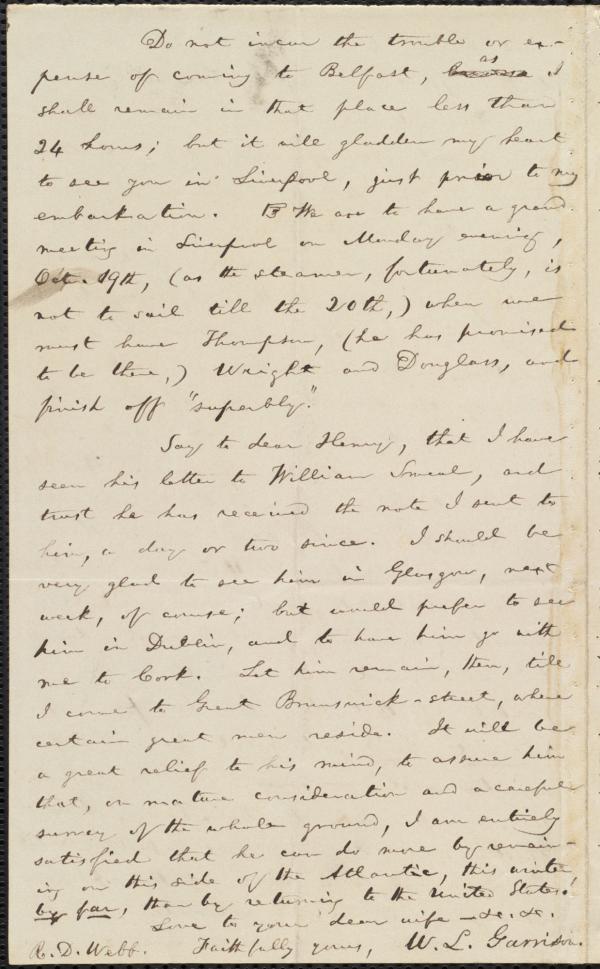 Do not incur the trouble or ex-
pense of coming to Belfast, as I
shall remain in that place less than
24 hours; but it will gladden my heart
to see you in Liverpool, just prior to my
embarkation. We are to have a grand
meeting in Liverpool on Monday evening,
Oct. 19th, (as the steamer, fortunately, is
not to sail till the 20th,) when we
must have Thompson, (he has promised
to be there,) Wright and Douglass, and
finish off "superbly."
Say to dear Henry, that I have
seen his letter to William Smeal, and
trust he has received the note I sent to
him, a day or two since. I should be
very glad to see him in Glasgow, next
week, of course; but would prefer to see
him in Dublin, and to have him go with
me to Cork. Let him remain, then, till
I come to Great Brunswick-street, where
certain great men reside. It will be
a great relief to his mind, to assure him
that, on mature consideration and a careful
survey of the whole ground, I am entirely
satisfied that he can do more by remain-
ing on this side of the Atlantic, this winter,
by far, than by returning to the United States.
Love to your dear wife — &c. &c.
R. D. Webb. Faithfully yours, W. L. Garrison.